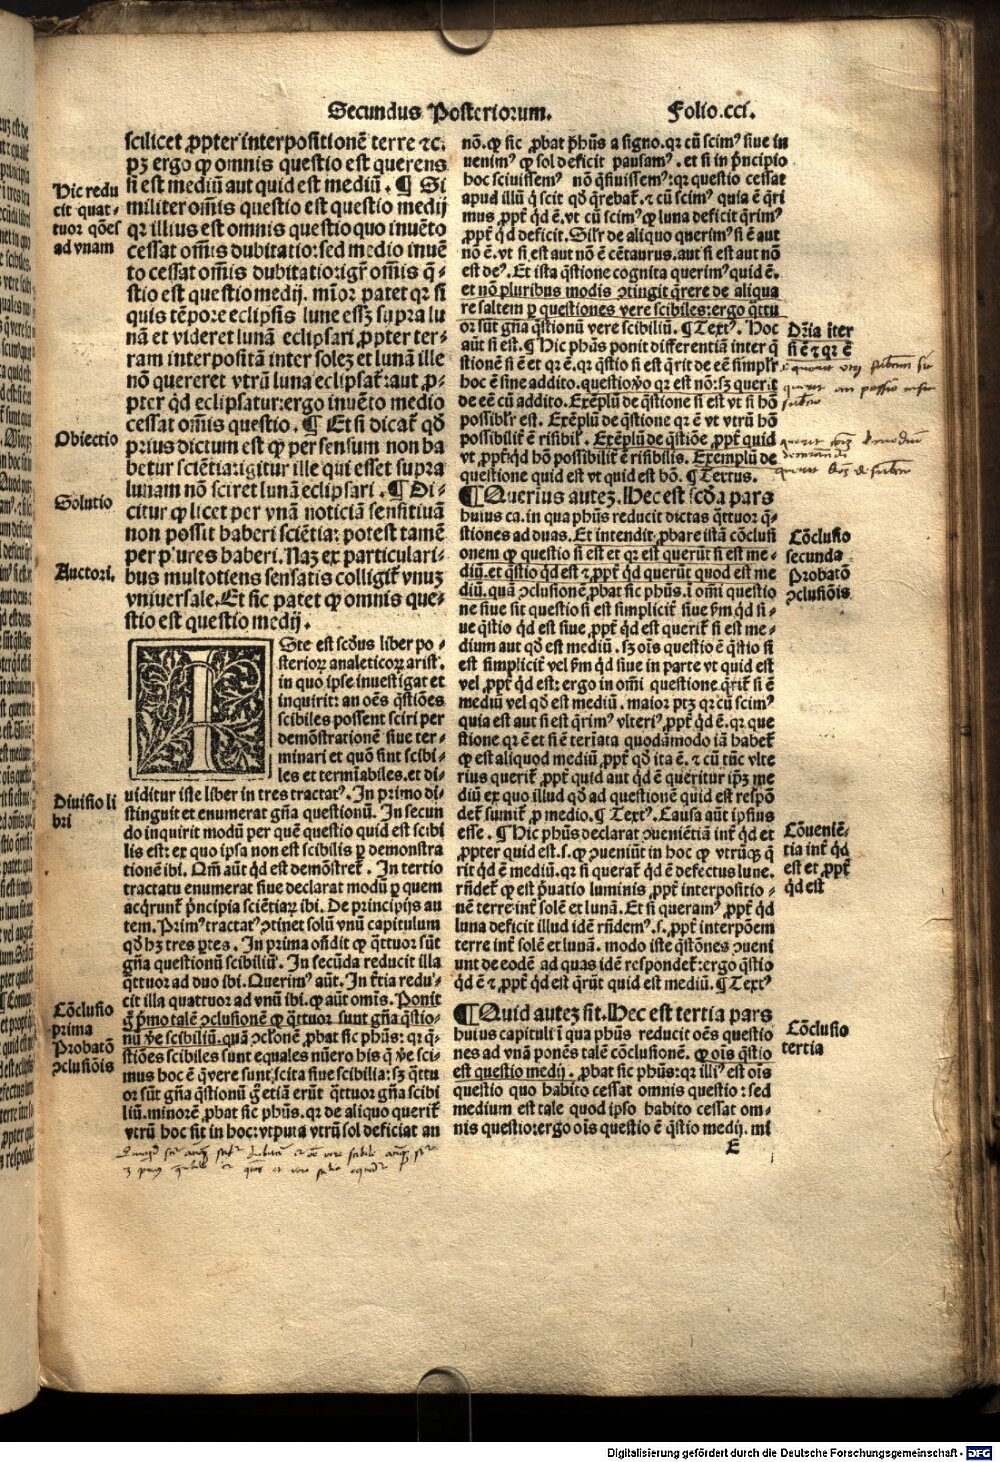 Secundus Posteriorum. Folio.cci.
scilicet ꝓpter interpositionē terre ⁊c.
pꝫ ergo ꝙ omnis questio est querens
si est mediū aut quid est mediū. ¶ Si
militer om̄is questio est questio medij
qꝛ illius est omnis questio quo inuēto
cessat om̄is dubitatio: sed medio inuē
to cessat om̄is dubitatio: igr̄ om̄is q̄⸗
stio est questio medij. mīor patet qꝛ si
quis tēpore eclipsis lune essꝫ supra lu
nā et videret lunā eclipsari ꝓpter ter⸗
ram interpositā inter solez et lunā ille
nō quereret vtrū luna eclipsat̄: aut ꝓ⸗
pter qd̄ eclipsatur: ergo inuēto medio
cessat om̄is questio. ¶ Et si dicat̄ qd̄
prius dictum est ꝙ per sensum non ha
betur sciētia: igitur ille qui esset supra
lunam nō sciret lunā eclipsari. ¶ Di⸗
citur ꝙ licet per vnā noticiā sensitiuā
non possit haberi sciētia: potest tamē
per plures haberi. Naz ex particulari⸗
bus multotiens sensatis colligit̄ vnuꝫ
vniuersale. Et sic patet ꝙ omnis que⸗
stio est questio medij.
Hic redu
cit quat⸗
tuor q̄oēs
ad vnam
Obiectio
Solutio
Auctori.
ISte est scd̄us liber po⸗
sterioꝝ analeticoꝝ arist.
in quo ipse inuestigat et
inquirit: an oēs q̄stiōes
scibiles possent sciri per
demōstrationē siue ter⸗
minari et quō sint scibi⸗
les et termīabiles. et di⸗
uiditur iste liber in tres tractatꝰ. In primo di⸗
stinguit et enumerat gn̄a questionū. In secun
do inquirit modū per quē questio quid est scibi
lis est: ex quo ipsa non est scibilis ꝑ demonstra
tionē ibi. Qm̄ aūt qd̄ est demōstret̄. In tertio
tractatu enumerat siue declarat modū ꝑ quem
acq̄runt̄ pn̄cipia sciētiaꝝ ibi. De principijs au
tem. Primꝰ tractatꝰ ꝯtinet solū vnū capitulum
qd̄ hꝫ tres ꝑtes. In prima on̄dit ꝙ q̄ttuor sūt
gn̄a questionū scibiliū. In secūda reducit illa
q̄ttuor ad duo ibi. Querimꝰ aūt. In t̄tia redu⸗
cit illa quattuor ad vnū ibi. ꝙ aūt om̄is. Ponit
g̊ pͥmo talē ꝯclusionē ꝙ q̄ttuor sunt gn̄a q̄stio⸗
nū v̄e scibiliū. quā ꝯcl̄onē ꝓbat sic ph̄us: qꝛ q̄⸗
stiōes scibiles sunt equales nūero his q̄ v̄e sci⸗
mus hoc ē q̄ vere sunt scita siue scibilia: sꝫ q̄ttu
or sūt gn̄a q̄stionū g̊ etiā erūt q̄ttuor gn̄a scibi
liū. minorē ꝓbat sic ph̄us. qꝛ de aliquo querit̄
vtrū hoc sit in hoc: vtputa vtrū sol deficiat an
Diuisio li
bri
Cōclusio
prima
Probatō
ꝯclusiōis
nō. ꝙ sic ꝓbat ph̄us a signo. qꝛ cū scimꝰ siue in
uenimꝰ ꝙ sol deficit pausamꝰ. et si in pn̄cipio
hoc sciuissemꝰ nō q̄siuissemꝰ: qꝛ questio cessat
apud illū q̄ scit qd̄ q̄rebat̄. ⁊ cū scimꝰ quia ē q̄ri
mus ꝓpt̄ qd̄ ē. vt cū scimꝰ ꝙ luna deficit q̄rimꝰ
ꝓpt̄ qd̄ deficit. Silr̄ de aliquo querimꝰ si ē aut
nō ē. vt si est aut nō ē cētaurus. aut si est aut nō
est deꝰ. Et ista q̄stione cognita querimꝰ quid ē.
et nō pluribus modis ꝯtingit q̄rere de aliqua
re saltem ꝑ questiones vere scibiles: ergo q̄ttu
or sūt gn̄a q̄stionū vere scibiliū. ¶ Textꝰ. Hoc
aūt si est. ¶ Hic ph̄us ponit differentiā inter q̄
stionē si ē et qꝛ ē. qꝛ q̄stio si est q̄rit de eē simplr̄
hoc ē sine addito. questio v̊o qꝛ est nō: sꝫ querit
de eē cū addito. Exēplū de q̄stione si est vt si hō
possiblr̄ est. Exēplū de q̄stione qꝛ ē vt vtrū hō
possibilit̄ ē risibilꝭ. Exēplū de q̄stiōe ꝓpt̄ quid
vt ꝓpt̄ qd̄ hō possibilit̄ ē risibilis. Exemplū de
questione quid est vt quid est hō. ¶ Textus.
¶ Querius autez. Hec est scd̄a pars
huius ca. in qua ph̄us reducit dictas q̄ttuor q̄⸗
stiones ad duas. Et intendit ꝓbare istā cōclusi
onem ꝙ questio si est et qꝛ est querūt si est me⸗
diū. et q̄stio qd̄ est ⁊ ꝓpt̄ qd̄ querūt quod est me
diū. quā ꝯclusionē ꝓbat sic ph̄us. ī om̄i questio
ne siue sit questio si est simplicit̄ siue ẜm qd̄ si⸗
ue q̄stio qd̄ est siue ꝓpt̄ qd̄ est querit̄ si est me⸗
dium aut qd̄ est mediū. sꝫ oīs questio ē q̄stio si
est simplicit̄ vel ẜm qd̄ siue in parte vt quid est
vel ꝓpt̄ qd̄ est: ergo in om̄i questione q̄rit̄ si ē
mediū vel qd̄ est mediū. maior ptꝫ qꝛ cū scimꝰ
quia est aut si est q̄rimꝰ vlteriꝰ ꝓpt̄ qd̄ ē. qꝛ que
stione qꝛ ē et si ē termīata quodāmodo iā habet̄
ꝙ est aliquod mediū ꝓpt̄ qd̄ ita ē. ⁊ cū tūc vlte
rius querit̄ ꝓpt̄ quid aut qd̄ ē queritur ipꝫ me
diū ex quo illud qd̄ ad questionē quid est respō
det̄ sumit̄ ꝓ medio. ¶ Textꝰ. Causa aūt ipsius
esse. ¶ Hic ph̄us declarat ꝯueniētiā int̄ qd̄ et
ꝓpter quid est. s. ꝙ ꝯueniūt in hoc ꝙ vtrūqꝫ q̄
rit qd̄ ē mediū. qꝛ si querat̄ qd̄ ē defectus lune.
rn̄det̄ ꝙ est pͥuatio luminis ꝓpt̄ interpositio⸗
nē terre int̄ solē et lunā. Et si queramꝰ ꝓpt̄ qd̄
luna deficit illud idē rn̄demꝰ. s. ꝓpt̄ interpōem
terre int̄ solē et lunā. modo iste q̄stōnes ꝯueni
unt de eodē ad quas idē respondet̄: ergo q̄stio
qd̄ ē ⁊ ꝓpt̄ qd̄ est q̄rūt quid est mediū. ¶ Textꝰ
¶ Quid autez sit. Hec est tertia pars
huius capituli ī qua ph̄us reducit oēs questio
nes ad vnā ponēs talē cōclusionē. ꝙ oīs q̄stio
est questio medij. ꝓbat sic ph̄us: qꝛ illiꝰ est oīs
questio quo habito cessat omnis questio: sed
medium est tale quod ipso habito cessat om⸗
nis questio: ergo oīs questio ē q̄stio medij. mi
E
Dr̄ia īter
si ē ⁊ qꝛ ē
Cōclusio
secunda
Probatō
ꝯclusiōis
Cōueniē⸗
tia int̄ qd̄
est et ꝓpt̄
qd̄ est
Cōclusio
tertia
Digitalisierung gefördert durch die Deutsche Forschungsgemeinschaft - DFG